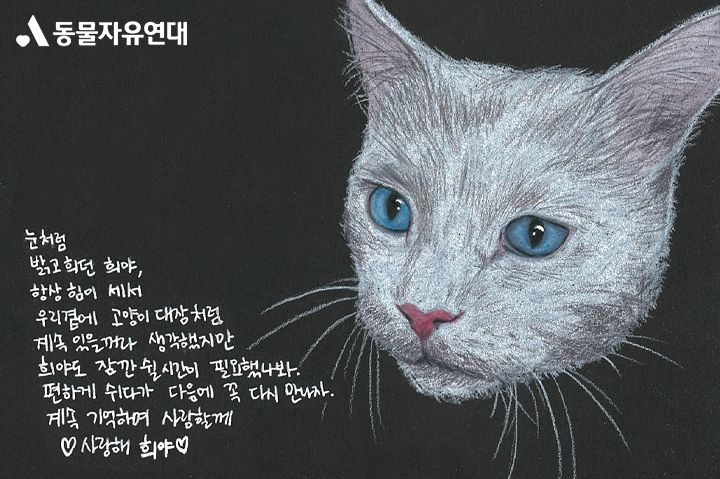 동물자유연대
눈처럼
밝고 희던 희야,
항상 힘이 세서
우리곁에 고양이 대장처럼
계속 있을꺼라 생각했지만
희야도 잠깐 쉴 시간이 필요했나봐.
편하게 쉬다가 다음에 꼭 다시 만나자.
계속 기억하며 사랑할께
♡사랑해 희야♡